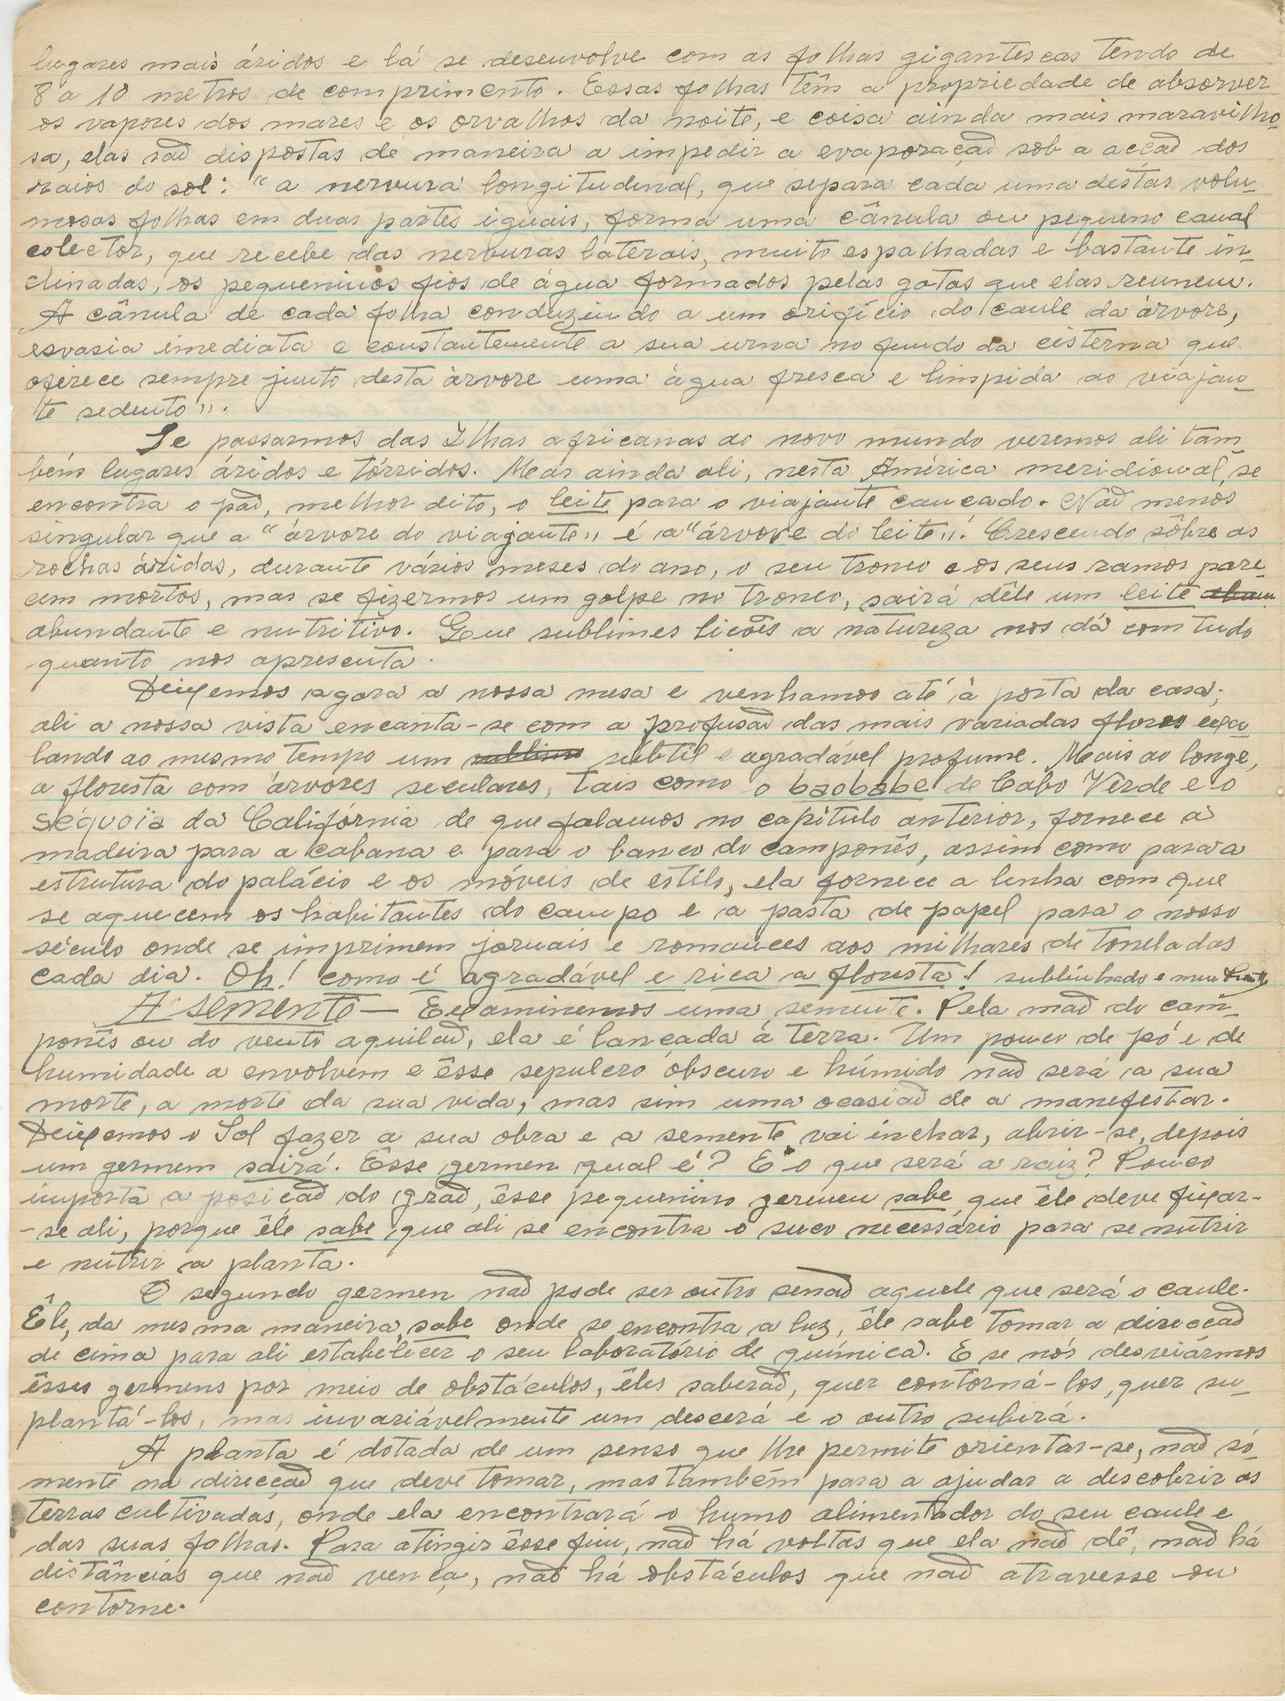 lugares mais áridos e lá se desenvolve com as folhas gigantescas tendo de
8 a 10 metros de comprimento. Essas folhas têm a propriedade de absorver
os vapores dos mares e os orvalhos da noite, e coisa ainda mais maravilho-
sa, elas são dispostas de maneira a impedir a evaporação sob a acção dos
raios do sol: "a nervura longitudinal, que separa cada uma destas volu-
mosas folhas em duas partes iguais, forma uma cânula ou pequeno canal
colector, que recebe das nerburas laterais, muito espalhadas e bastante in-
clinadas, os pequeninos fios de água formados pelas gotas que elas reunem.
A cânula de cada folha conduzindo a um orifício do caule da árvore,
esvasia imediata e constantemente a sua urna no fundo da cisterna que
oferece sempre junto desta árvore uma água fresca e limpida ao viajan-
te sedento".
Se passarmos das Ilhas africanas ao novo mundo veremos ali tam
bém lugares áridos e tórridos. Mas ainda ali, nesta América meridional, se
encontra o pão, melhor dito, o leite para o viajante cançado. Não menos
singular que a "árvore do viajante" é a "árvore do leite". Crescendo sôbre as
rochas áridas, durante vários meses do ano, o seu tronco e os seus ramos pare-
cem mortos, mas se fizermos um golpe no tronco, sairá dêle um leite
abundante e nutritivo. Que sublimes lições a natureza nos dá com tudo
quanto nos apresenta.
Deixemos agora a nossa mesa e venhamos até à porta da casa;
ali a nossa vista encanta-se com a profusão das mais variadas flores exa
lando ao mesmo tempo um sublime subtil e agradável profume. Mais ao longe,
a floresta com árvores seculares, tais como o baobabe de Cabo Verde e o
séquoïa da Califórnia de que falamos no capítulo anterior, fornece a
madeira para a cabana e para o banco do camponês, assim como para a
estrutura do palácio e os móveis de estilo, ela fornece a lenha com que
se aquecem os habitantes do campo e a pasta de papel para o nosso
século onde se imprimem jornais e romances aos milhares de toneladas
cada dia. Oh! como é agradável e rica a floresta! sublinhado e meu
A semente — Examinemos uma semente. Pela mão do cam-
ponês ou do vento aquilão, ela é lançada á terra. Um pouco de pó e de
humidade a envolvem e êsse sepulcro obscuro e húmido não será a sua
morte, a morte da sua vida, mas sim uma ocasião de a manifestar.
Deixemos o Sol fazer a sua obra e a semente vai inchar, abrir-se, depois
um germem sairá. Êsse germen qual é? E o que será a raiz? Pouco
importa a posição do grão, êsse pequenino germen sabe que êle deve fixar-
-se ali, porque êle sabe que ali se encontra o suco necessário para se nutrir
e nutrir a planta.
O segundo germen não pode ser outro senão aquele que será o caule.
Êle, da mesma maneira, sabe onde se encontra a luz, êle sabe tomar a direcção
de cima para ali estabelecer o seu laboratório de química. E se nós desviármos
êsses germens por meio de obstáculos, êles saberão, quer contorná-los, quer su-
plantá-los, mas invariávelmente um descerá e o outro subirá.
A planta é dotada de um senso que lhe permite orientar-se, não só
mente na direcção que deve tomar, mas também para a ajudar a descobrir as
terras cultivadas, onde ela encontrará o humo alimentador do seu caule e
das suas folhas. Para atingir êsse fim, não há voltas que ela não dê, não há
distâncias que não vença, não há obstáculos que não atravesse ou
contorne.